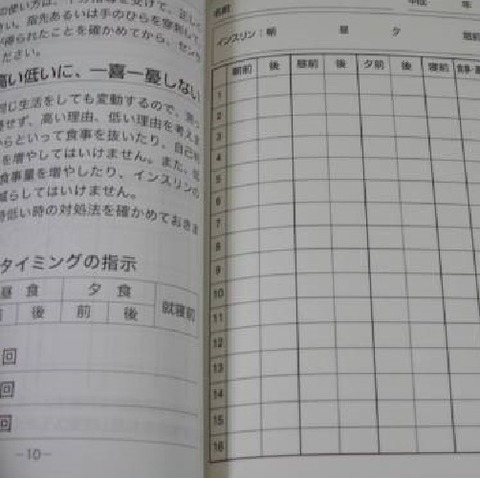 の使い方は、十分指導を受けて、正し
さい。指先あるいは手のひらを穿刺して
が得られたことを確かめてから、センサ
ださい。
高い低いに、一喜一憂しない
同じ生活をしても変動するので、
せず、高い理由、低い理由を考えま
からといって食事を抜いたり、自己
を増やしてはいけません。また、
食事量を増やしたり、インスリンの
減らしてはいけません。
時低い時の対処法を確かめておきま
タイミングの指示
昼食 夕食 就寝前
前 後 前 後
回
回
回
−10−
名前 年
インスリン：朝 昼 夕
朝前 後 昼前 後 夕前 後 寝前 食事
1
2
3
4
5
6
7
8
9
10
11
12
13
14
15
16